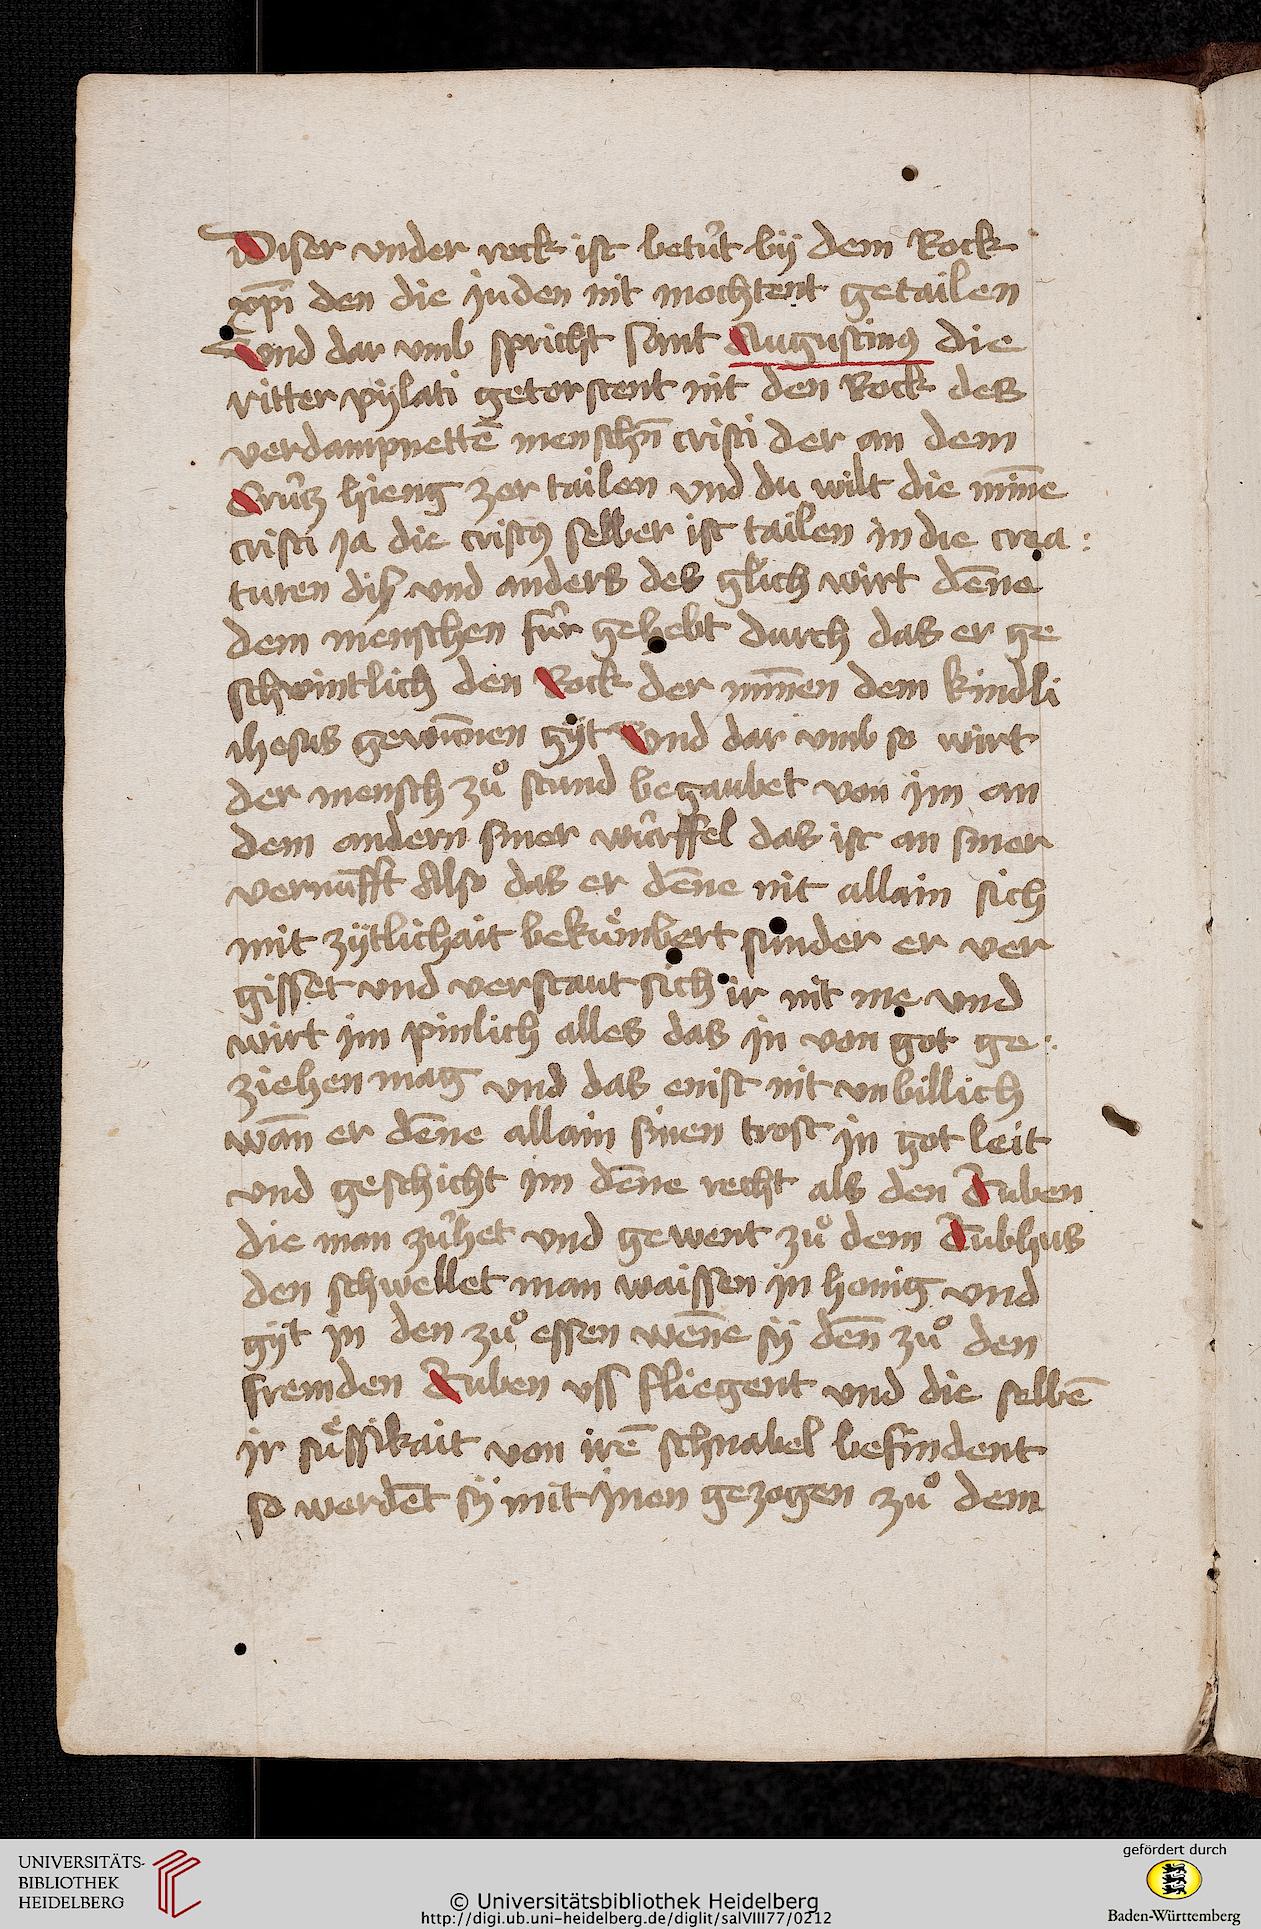 Diser vnder rock ist betűt bÿ dem Rock
xp̄i den die juden nit mochtent getailen
Vnd dar vmb spricht sant Augustinꝰ die
ritter pÿlati getorstent nit den Rock des
verdampnettē menschn̄ cristi der an dem
Crűtz hieng zer tailen vnd du wilt die miñe
cristi ja die cristꝰ selber ist tailen in die crea:
turen diß vnd anders des glich wirt deñe
dem menschen fűr gehebt durch das er ge
schwintlich den Rock der miñen dem kindli
ihesus gewuñen gÿt Vnd dar vmb so wirt
der mensch zuͦ stund begaubet von im an
dem andern siner wűrffel das ist an siner
vernūfft Also das er deñe nit allain sich
mit zÿtlichait bekuͤmbert sunder er ver
gisset vnd verstaut sich ir nit me vnd
wirt im pinlich alles das in von got ge:
ziehen mag vnd das enist nit vnbillich
wañ er deñe allain sinen trost in got leit
vnd geschicht im deñe recht als den Tuben
die man zűhet vnd gewent zuͦ dem Tubhus
den schwellet man waissen in honig vnd
gÿt in den zuͦ essen weñe sÿ deñ zuͦ den
fremden Tuben vss fliegent vnd die selbē
ir suͤssikait von irē schnabel befindent
so werdēt sÿ mit inen gezogen zuͦ dem
UNIVERSITÄTS-
BIBLIOTHEK
HEIDELBERG
© Universitätsbibliothek Heidelberg
http://digi.ub.uni-heidelberg.de/diglit/salVIII77/0212
gefördert durch
Baden-Württemberg